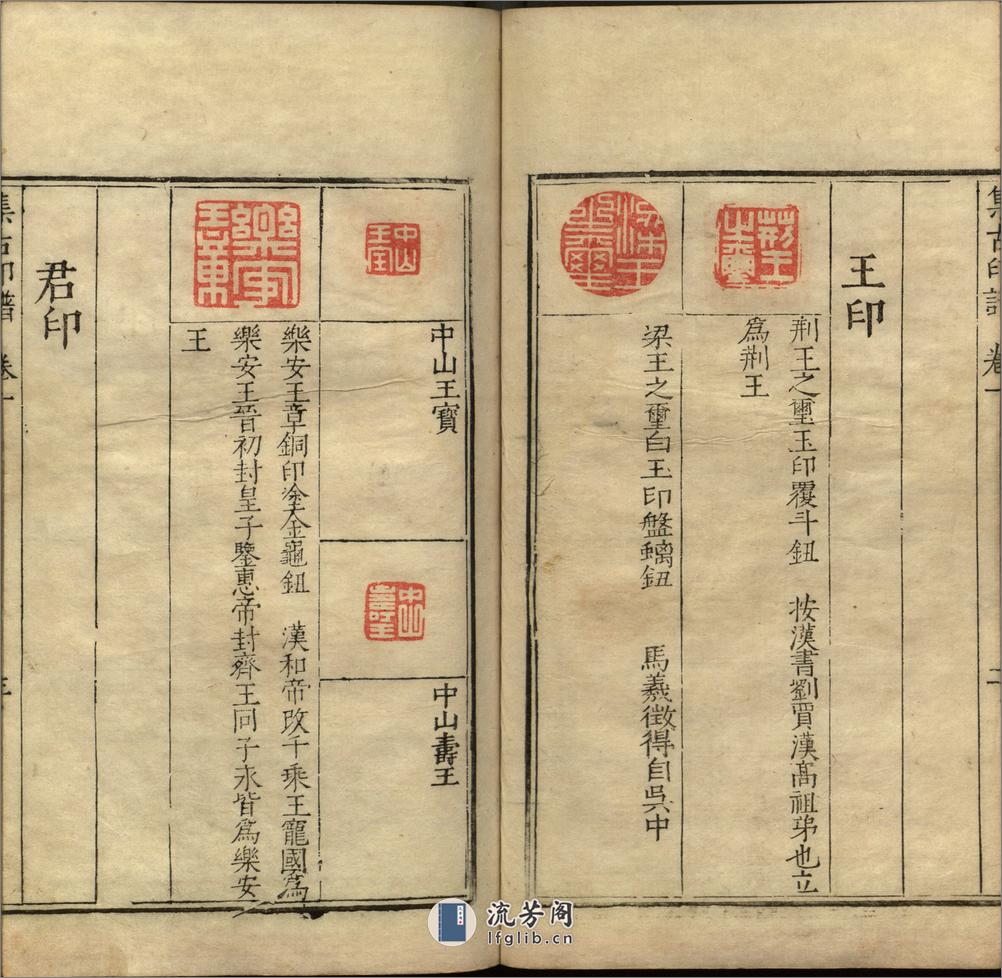 集古印譜 卷一 二
王印
荆王之璽
荆王之璽玉印覆斗鈕 按漢書劉賈漢高祖弟也立
爲荆王
梁王之璽白玉印盤螭鈕 馬羲徵得自吳中
中山王寶
中山王寶
中山壽王
中山壽王
樂安王章
樂安王章銅印塗金龜鈕 漢和帝改千乘王寵國爲
樂安王晉初封皇子鑒惠帝封齊王冏子永皆爲樂安
王
君印
集古印譜 卷一
流芳阁
lfglib.cn